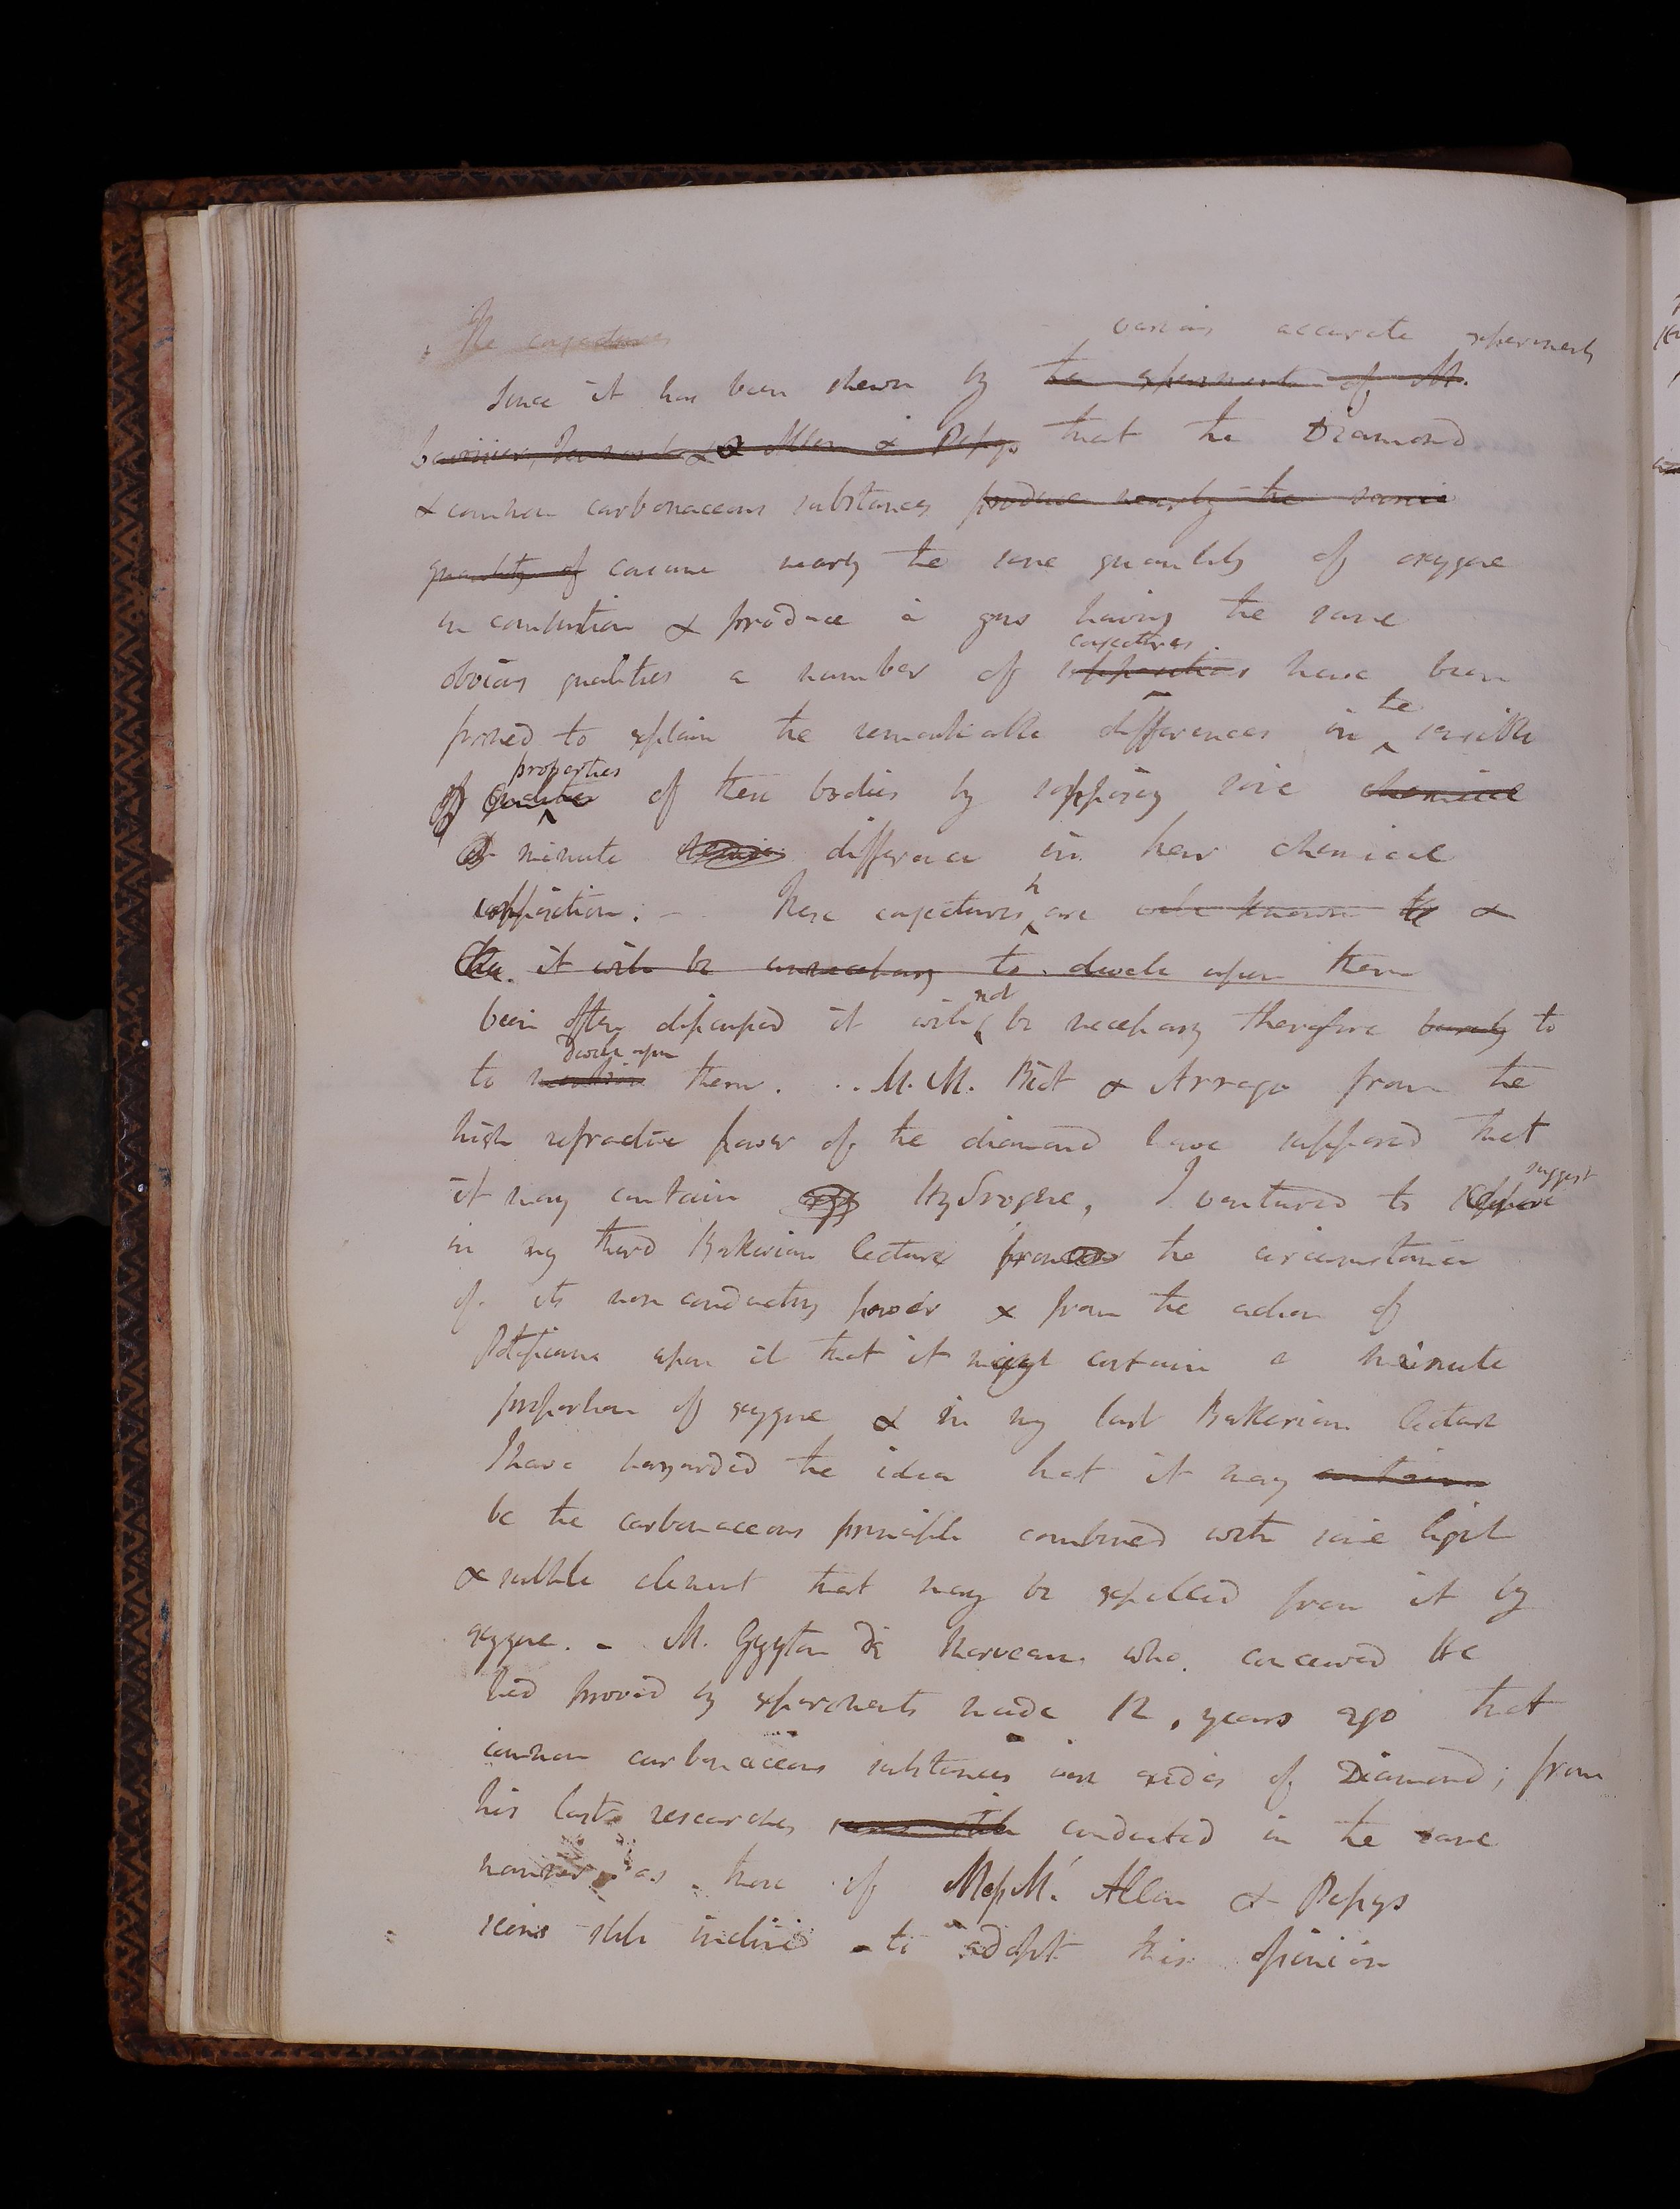 The conjectures
various accurate experiments
Since it has been shewn by the experiments of M.
Lavoisier, Tennant & Allen & Pepys that the Diamond
& common carbonaceous substances produce nearly the same
quantity of consume nearly the same quantity of oxygene
in combustion & produce a gas having the same
conjectures
obvious qualities a number of suppositions have been
formed to explain the remarkable differences in the sensible
properties
of qualities of these bodies by supposing some chemical
minute difference in their chemical
composition. - These conjectures are well known &
it will be unnecessary to dwell upon them
been often discussed it will not be necessary therefore barely to
dwell upon
to mention them. M.M. Biot & Arrago from the
high refractive power of the diamond have supposed that
suggest
it may contain Hydrogene, I ventured to
in my third Bakerian lecture from the circumstance
of its non conducting power & from the action of
Potassium upon it that it might contain a minute
proportion of oxygene & in my last Bakerian lecture
I have hazarded the idea that it may contain
be the carbonaceous principle combined with some light
& subtle element that may be expelled from it by
oxygene. - M. Guyton de Morveau who conceived He
had proved by experiments made 12 years ago that
common carbonaceous substances were oxides of Diamond; from
his last researches conducted in the same
manner as those of Messrs. Allen & Pepys
seems still inclined to adopt this opinion